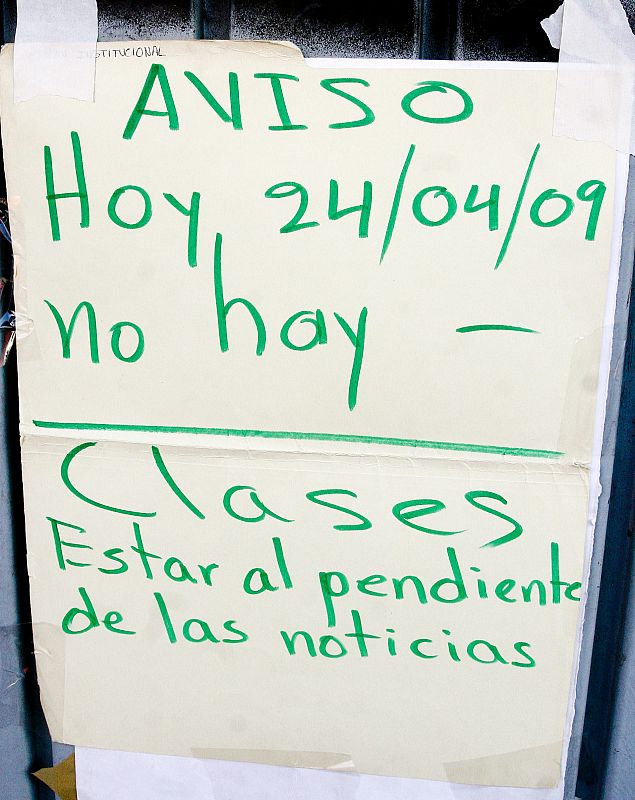 INSTITUCIONAL
AVISO
Hoy 24/04/09
no hay —
Clases
Estar al pendiente
de las noticias